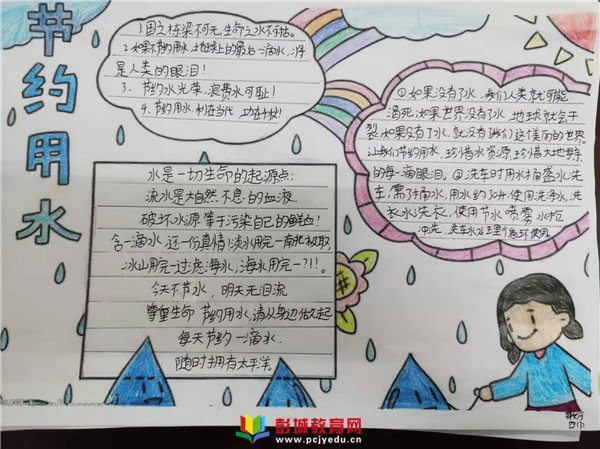 节约用水
1.国之栋梁不可无,生命之水不可枯。
2.如果不节约用水,地球上的最后一滴水,将
是人类的眼泪!
3、节约水光荣,浪费水可耻!
4、节约用水,利在当代,功在千秋!
①如果没有了水,我们人类就可能
渴死;如果世界没有了水,地球就会干
裂;如果没有了水,就没有我们这个美丽的世界。
让我们节约用水,珍惜水资源,珍惜大地母亲
的每一滴眼泪。②洗车时用水桶盛水洗
车,需3桶水,用水约30升,使用洗净水、洗
衣水洗衣,使用节水喷雾水枪
冲洗
水是一切生命的起源点:
流水是大自然不息的血液
破坏水源等于污染自己的鲜血!
含一滴水,还一份真情!淡水用完一南北极取,
冰山用完一过滤海水,海水用完一?!!。
今天不节水,明天无泪流
尊重生命 节约用水,请从身边做起
每天节约一滴水.
随时拥有太平洋。
彭城教育网
www.pcjyedu.cn